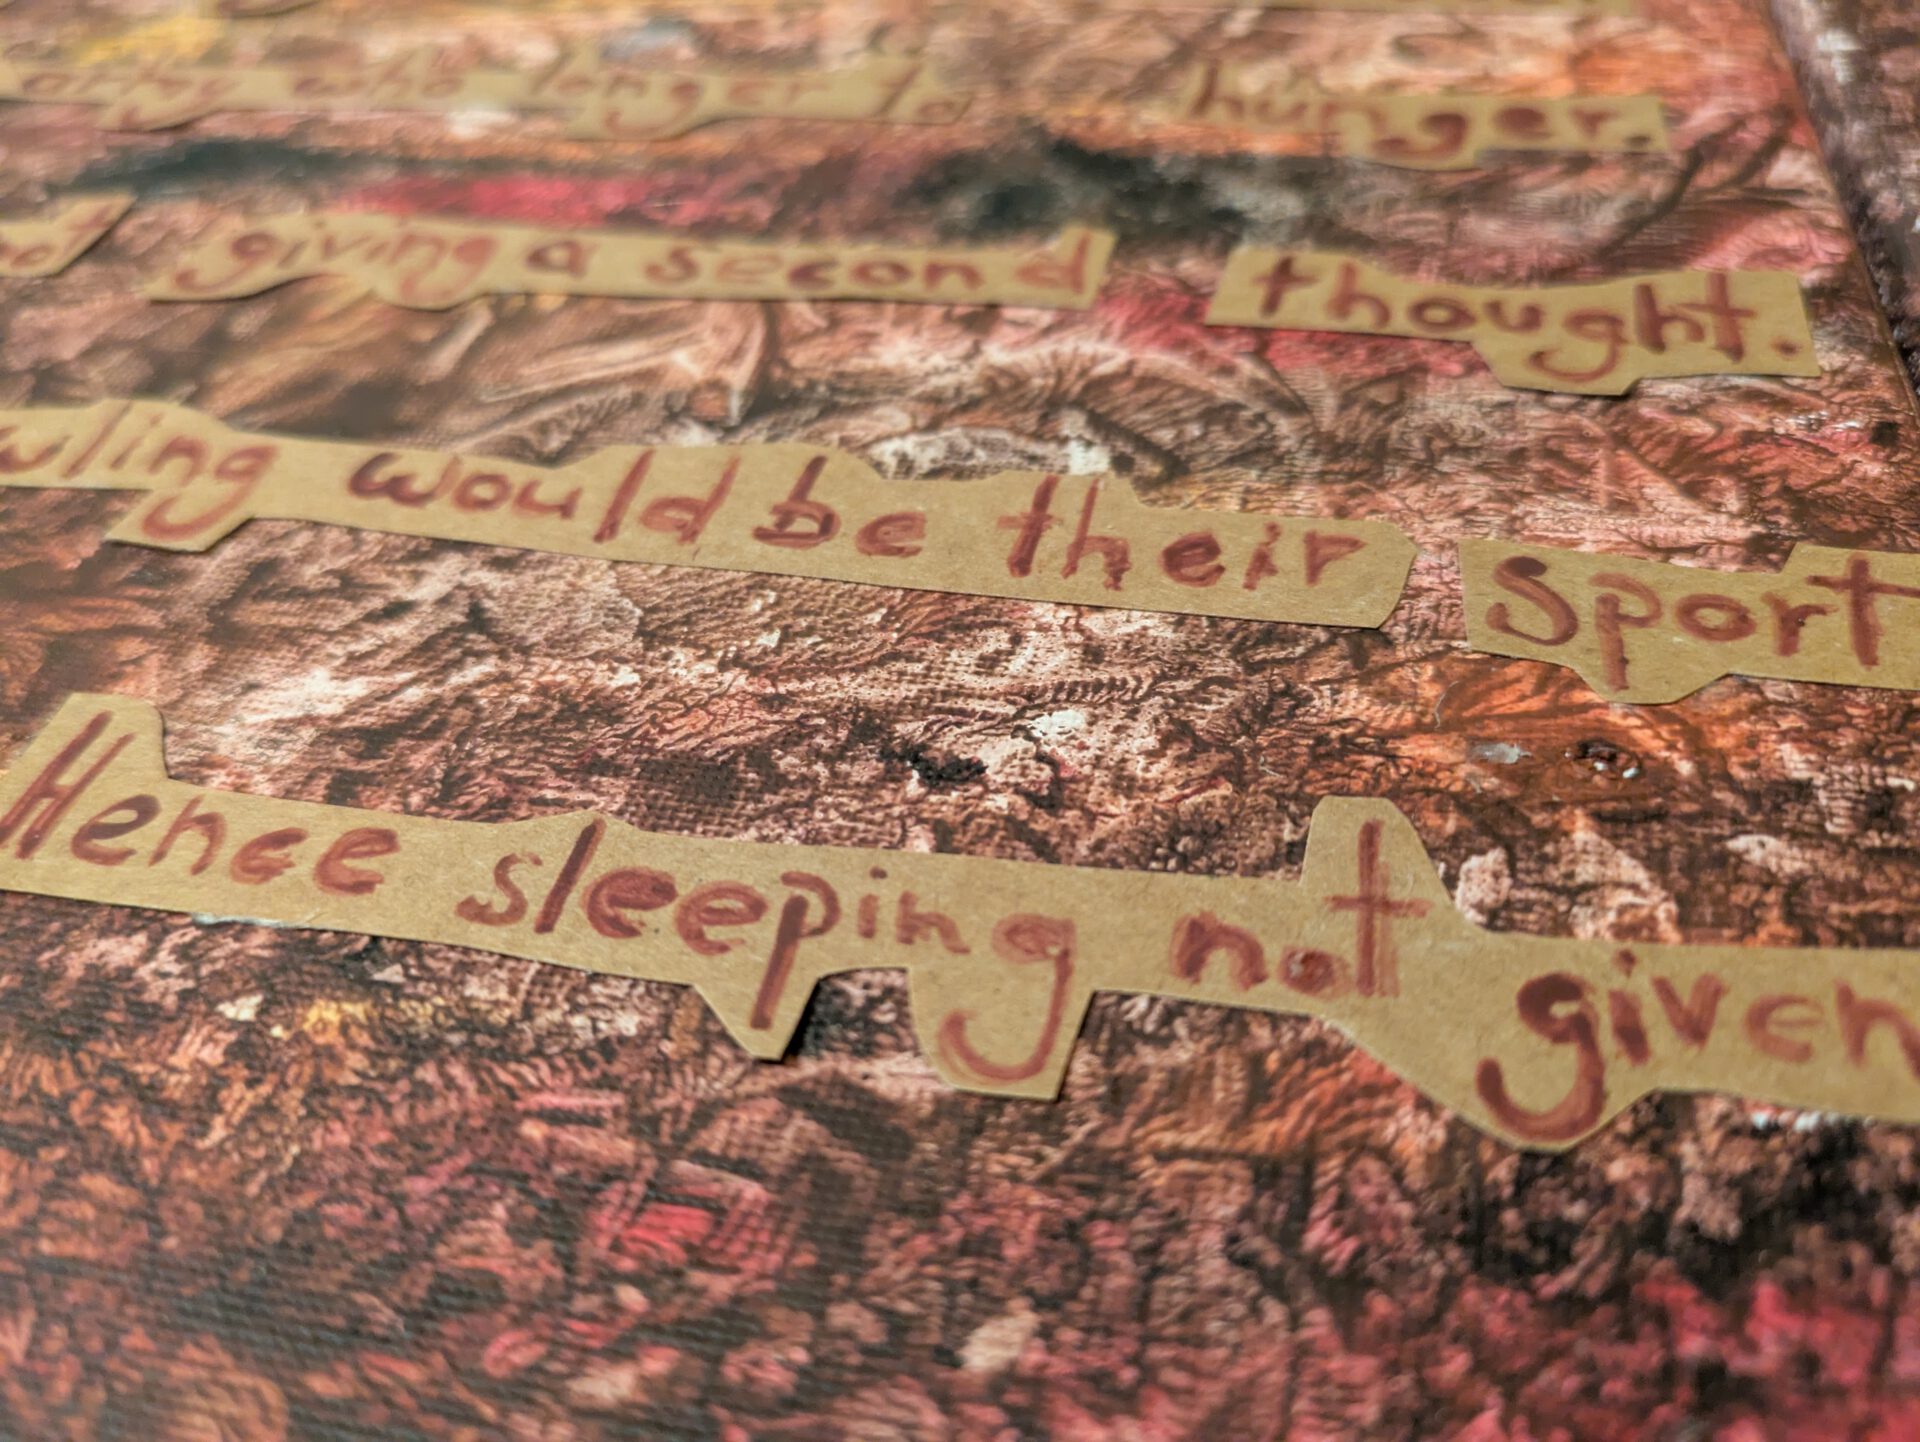 who longer to hunger.
giving a second thought.
wling would be their sport
Hence sleeping not given